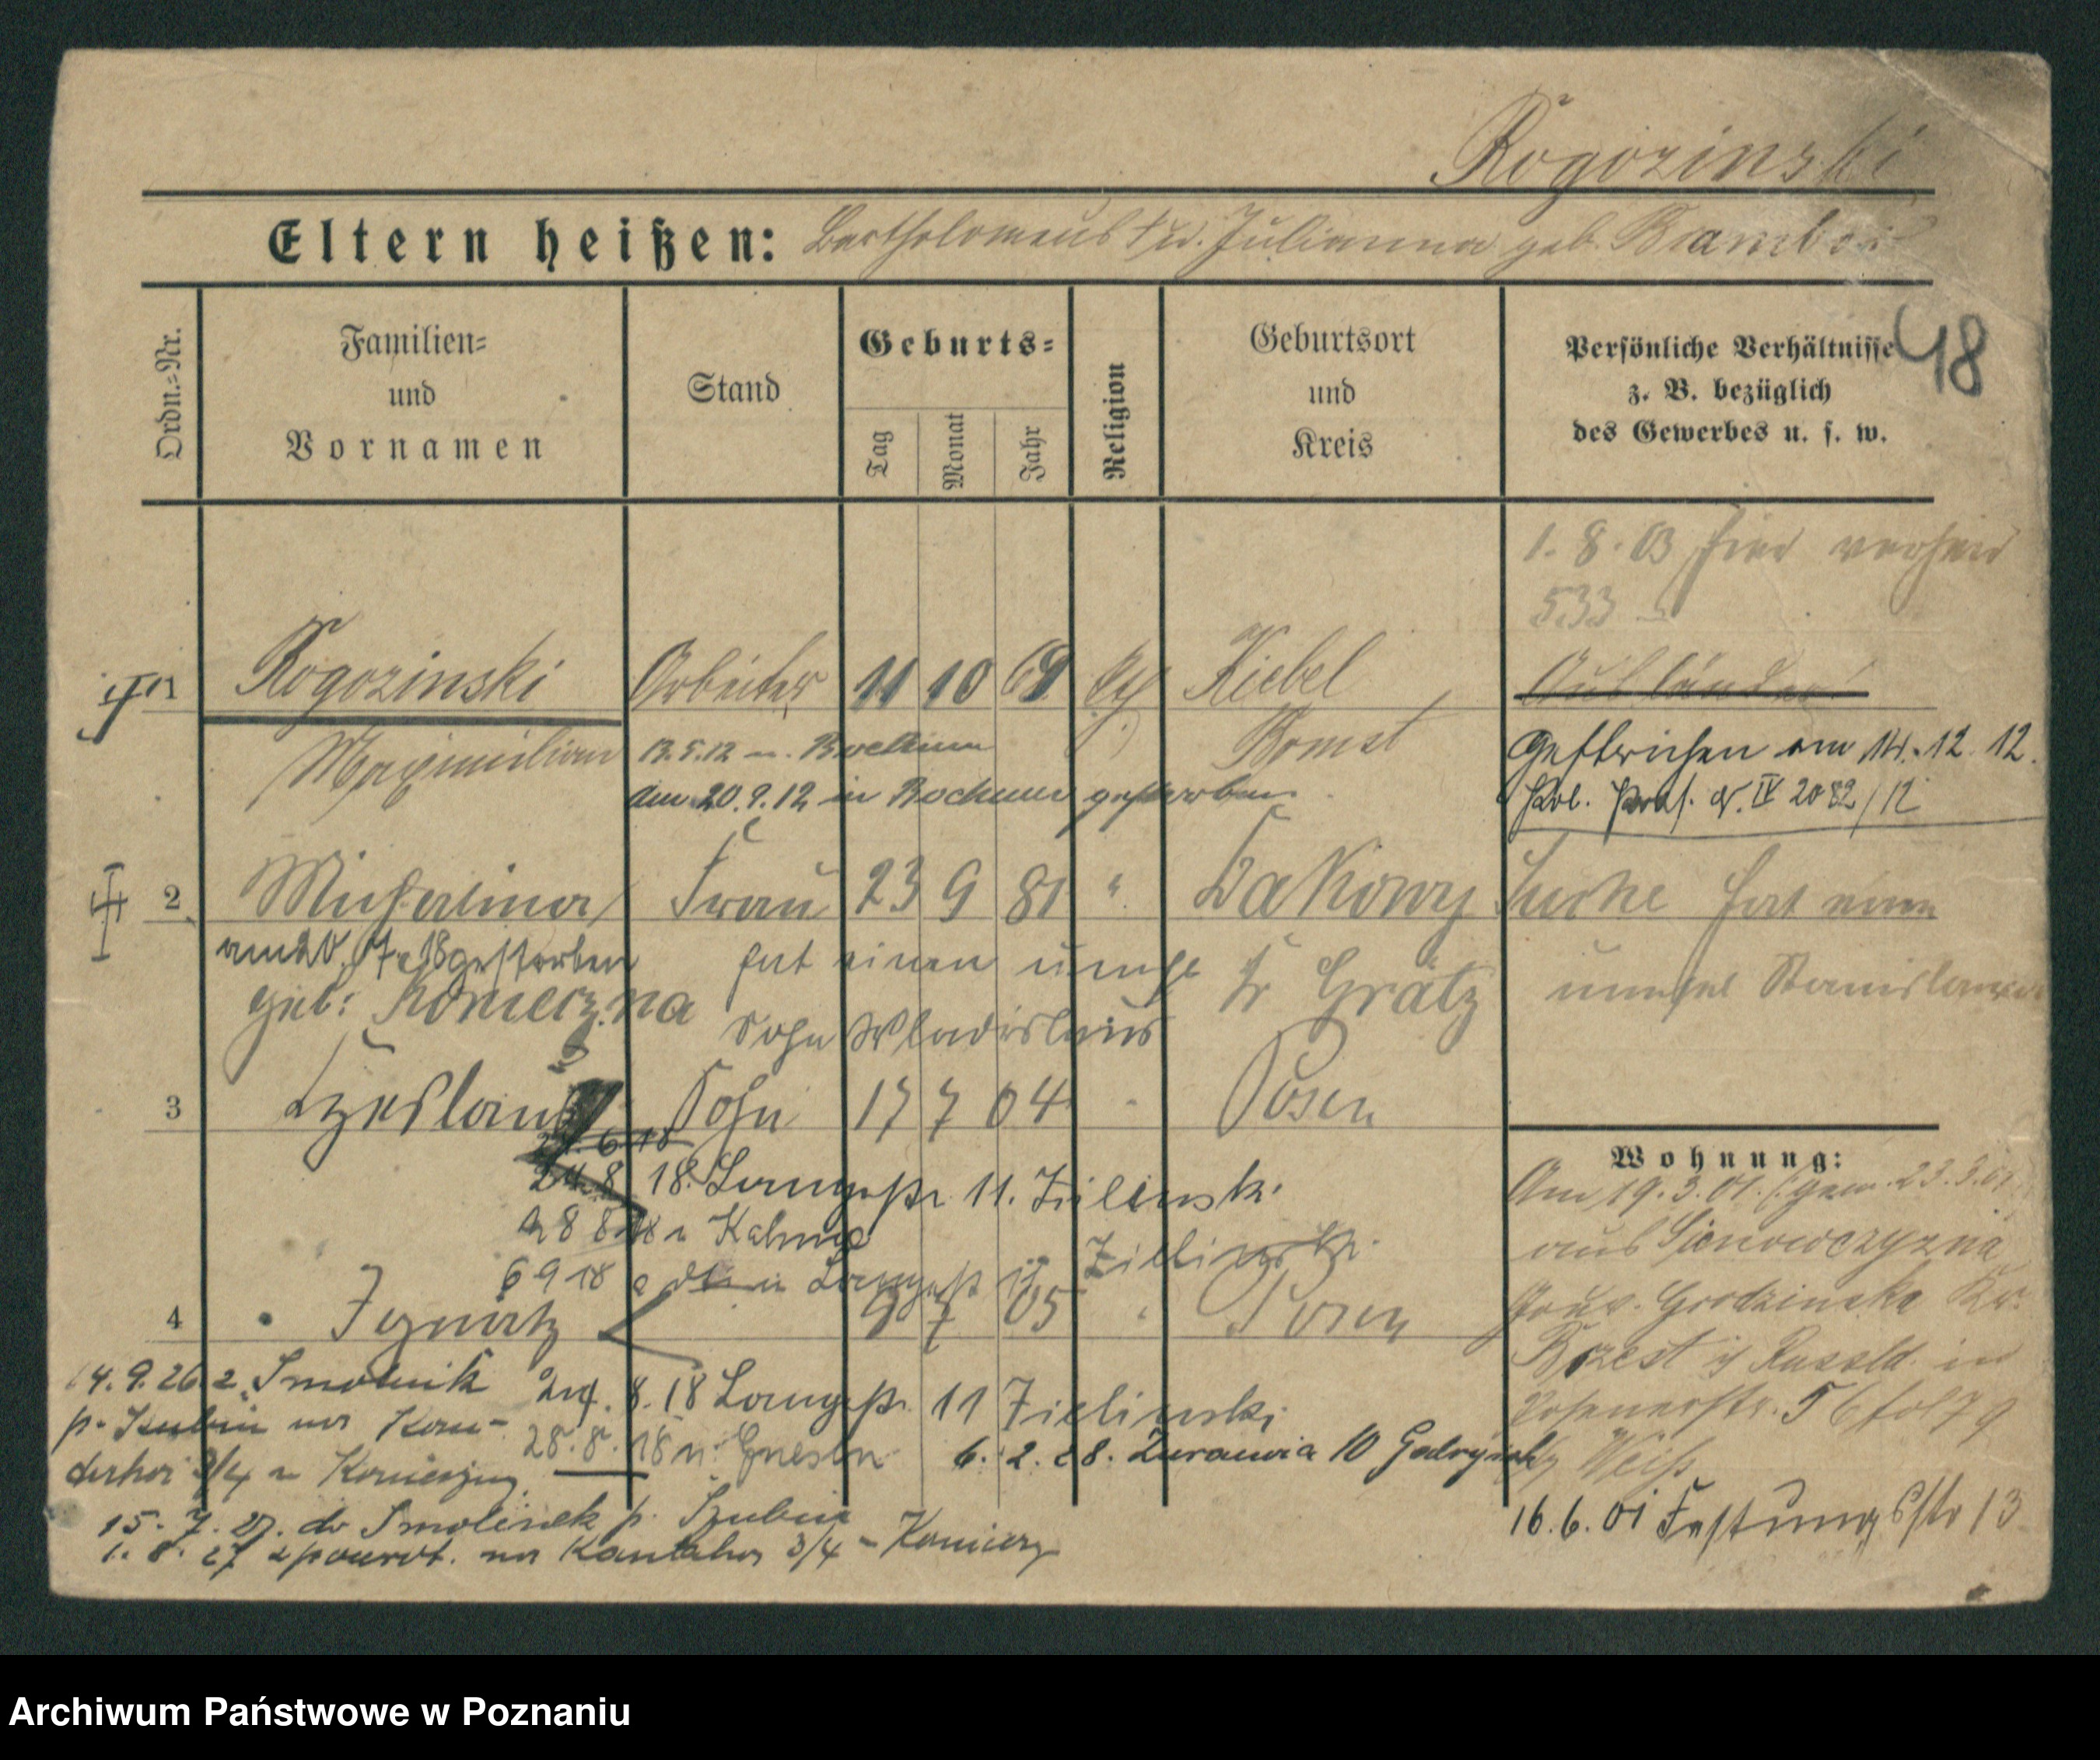 Rogozinski
Eltern heißen: Bartholomeus † u. Julianna geb. Bambor
48
Ordn.=Nr.
Familien=
und
Vornamen
Stand
Geburts=
Tag
Monat
Jahr
Religion
Geburtsort
und
Kreis
Persönliche Verhältnisse
z. B. bezüglich
des Gewerbes u. s. w.
1. 8. 03 hier verheir
533
1 Rogozinski Arbeiter 11 10 69 Kiebel
Ausländer
Maximilian 13.5.12 n. Bochum Bomst
Gestrichen am 14.12.12.
am 20.9.12 in Bochum gestorben
IV 2082/12
2 Michalina Frau 23 9 81 " Dakowy
hat einen
am 20. 7. 18 gestorben
hat einen unehe
Kr Grätz
unehel Stanislaus
geb: Konieczna
Sohn Wladislaus
3 Czeslaus Sohn 17 7 04 Posen
6 18
24.8 18. Langestr. 11. Zielinski
28 8 18 n Kalmar
6 9 18 Langestr 11 Zielinski
4 Ignatz 9 7 05 Posen
Wohnung:
Am 19.3.01. (gem. 23.3.01
aus Sienowczyzna
Grodzinska Kr.
Brzest in Russld. in
Posenerstr. 56
Weiß
16.6.01 Festungsstr 13
14.9.26 z Smolnik
p. Szubin
3/4
24. 8. 18 Langestr. 11 Zielinski
28. 8. 18 n. Gnesen
6. 2. 28. Żurawia 10
15. 7. 27. do Smolinek p. Szubin
1. 8. 27 z powrot. na Kantaka 3/4 - Konieczn
Archiwum Państwowe w Poznaniu